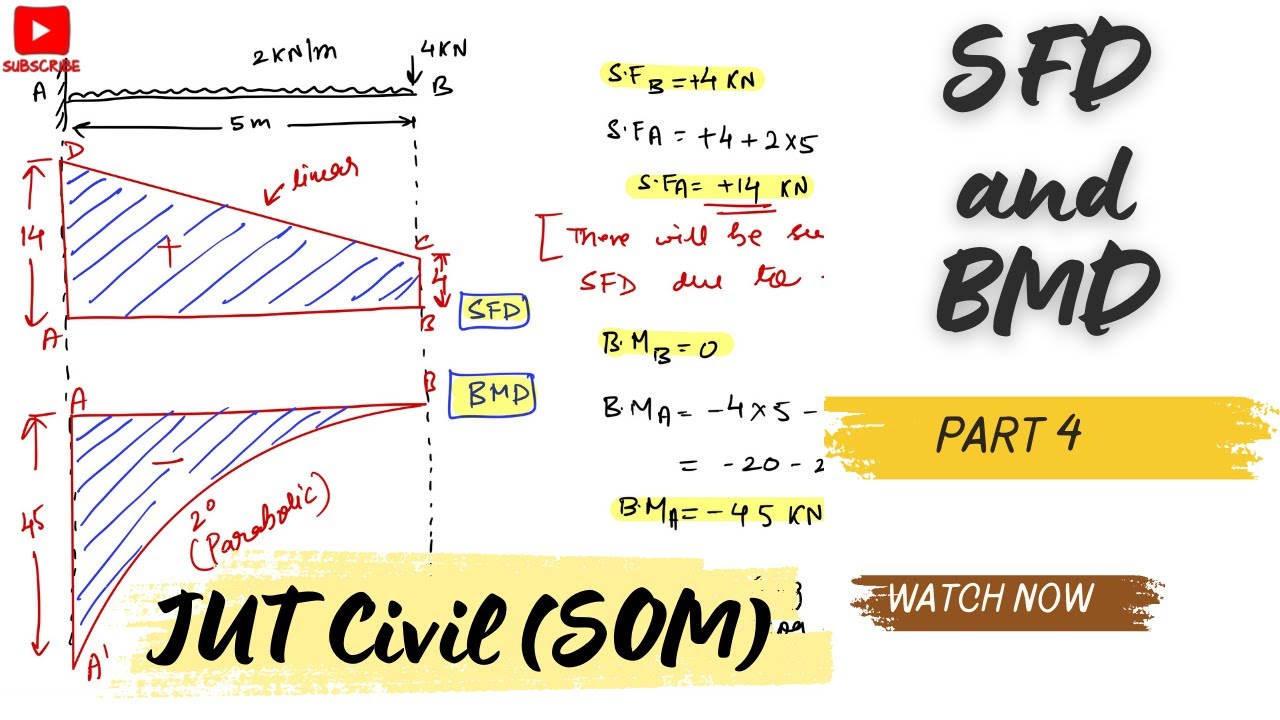 SUBSCRIBE
2KN/m
4KN
A
B
5m
D
linear
14
+
C
4
A
B
SFD
A
B
BMD
-
45
2°
(Parabolic)
A'
S.F_B = +4 KN
S.F_A = +4 + 2×5
S.F_A = +14 KN
[There will be
SFD due to
B.M_B = 0
B.M_A = -4×5 -
= -20 - 2
B.M_A = -45 KN
SFD
and
BMD
PART 4
WATCH NOW
JUT Civil (SOM)